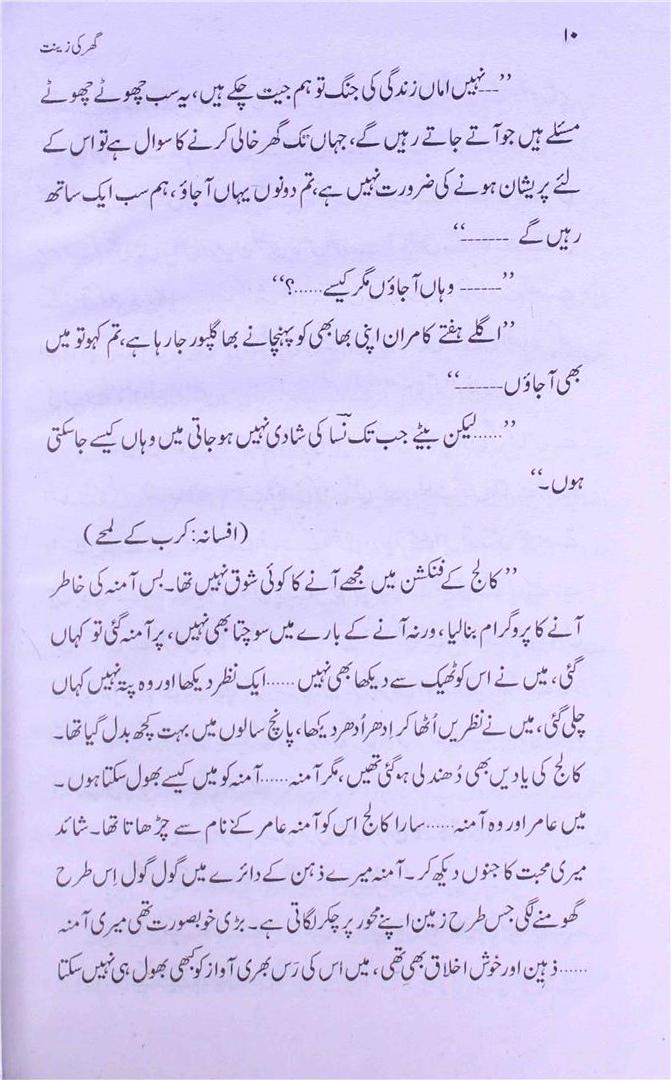 ۱۰
گھر کی زینت
’’---نہیں اماں زندگی کی جنگ تو ہم جیت چکے ہیں، یہ سب چھوٹے چھوٹے
مسئلے ہیں جو آتے جاتے رہیں گے، جہاں تک گھر خالی کرنے کا سوال ہے تو اس کے
لئے پریشان ہونے کی ضرورت نہیں ہے، تم دونوں یہاں آجاؤ، ہم سب ایک ساتھ
رہیں گے ------‘‘
’’------ وہاں آجاؤں مگر کیسے.....؟‘‘
’’اگلے ہفتے کامران اپنی بھابھی کو پہنچانے بھاگلپور جارہا ہے، تم کہو تو میں
بھی آجاؤں------‘‘
’’......لیکن بیٹے جب تک نسا کی شادی نہیں ہوجاتی میں وہاں کیسے جاسکتی
ہوں۔‘‘
(افسانہ: کرب کے لمحے)
’’کالج کے فنکشن میں مجھے آنے کا کوئی شوق نہیں تھا۔ بس آمنہ کی خاطر
آنے کا پروگرام بنالیا، ورنہ آنے کے بارے میں سوچتا بھی نہیں، پر آمنہ گئی تو کہاں
گئی، میں نے اس کو ٹھیک سے دیکھا بھی نہیں......ایک نظر دیکھا اور وہ پتہ نہیں کہاں
چلی گئی، میں نے نظریں اُٹھا کر اِدھر اُدھر دیکھا، پانچ سالوں میں بہت کچھ بدل گیا تھا۔
کالج کی یادیں بھی دُھندلی ہو گئی تھیں، مگر آمنہ......آمنہ کو میں کیسے بھول سکتا ہوں۔
میں عامر اور وہ آمنہ......سارا کالج اس کو آمنہ عامر کے نام سے چڑھاتا تھا۔ شائد
میری محبت کا جنوں دیکھ کر۔ آمنہ میرے ذہن کے دائرے میں گول گول اِس طرح
گھومنے لگی جس طرح زمین اپنے محور پر چکر لگاتی ہے۔ بڑی خوبصورت تھی میری آمنہ
......ذہین اور خوش اخلاق بھی تھی، میں اس کی رَس بھری آواز کو کبھی بھول ہی نہیں سکتا